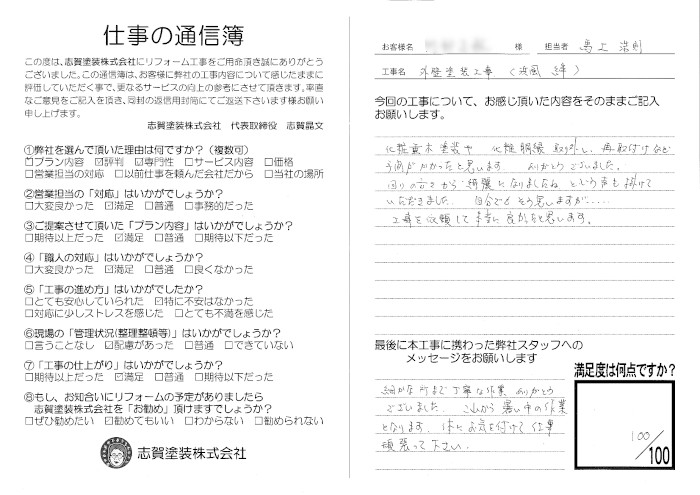 仕事の通信簿
この度は、志賀塗装株式会社にリフォーム工事をご用命頂き誠にありがとう
ございました。この通信簿は、お客様に弊社の工事内容について感じたままに
評価していただく事で、更なるサービスの向上の参考にさせて頂きます。率直
なご意見をご記入を頂き、同封の返信用封筒にてご返送下さいます様お願い
申し上げます。
志賀塗装株式会社　代表取締役　志賀晶文
①弊社を選んで頂いた理由は何ですか？（複数可）
☑プラン内容　☑評判　☑専門性　□サービス内容　□価格
□営業担当の対応　□以前仕事を頼んだ会社だから　□当社の場所
②営業担当の「対応」はいかがでしょうか？
□大変良かった　☑満足　□普通　□事務的だった
③ご提案させて頂いた「プラン内容」はいかがでしょうか？
□期待以上だった　☑満足　□普通　□期待以下だった
④「職人の対応」はいかがでしょうか？
□大変良かった　☑満足　□普通　□良くなかった
⑤「工事の進め方」はいかがでしたか？
□とても安心していられた　☑特に不安はなかった
□対応に少しストレスを感じた　□とても不満を感じた
⑥現場の「管理状況(整理整頓等)」はいかがでしょうか？
□言うことなし　☑配慮があった　□普通　□できていない
⑦「工事の仕上がり」はいかがでしょうか？
□期待以上だった　☑満足　□普通　□期待以下だった
⑧もし、お知合いにリフォームの予定がありましたら
志賀塗装株式会社を「お勧め」頂けますでしょうか？
□ぜひ勧めたい　☑勧めてもいい　□わからない　□勧められない
志賀塗装株式会社
お客様名　様　担当者　馬上
工事名　外壁塗装工事
今回の工事について、お感じ頂いた内容をそのままご記入
お願いします。
化粧 木塗装や 化粧胴縁 取外し、再取付けなど
手間がかかったと思います ありがとうございました。
回りの方々から"綺麗"になりましたね という声も掛けて
いただきました。自分でもそう思いますが.....
工事を依頼して本当に良かったと思います。
最後に本工事に携わった弊社スタッフへの
メッセージをお願いします
細かな所まで丁寧な作業 ありがとう
ございました。これから暑い中の作業
となります。体にお気を付けて仕事
頑張って下さい。
満足度は何点ですか？
100/100